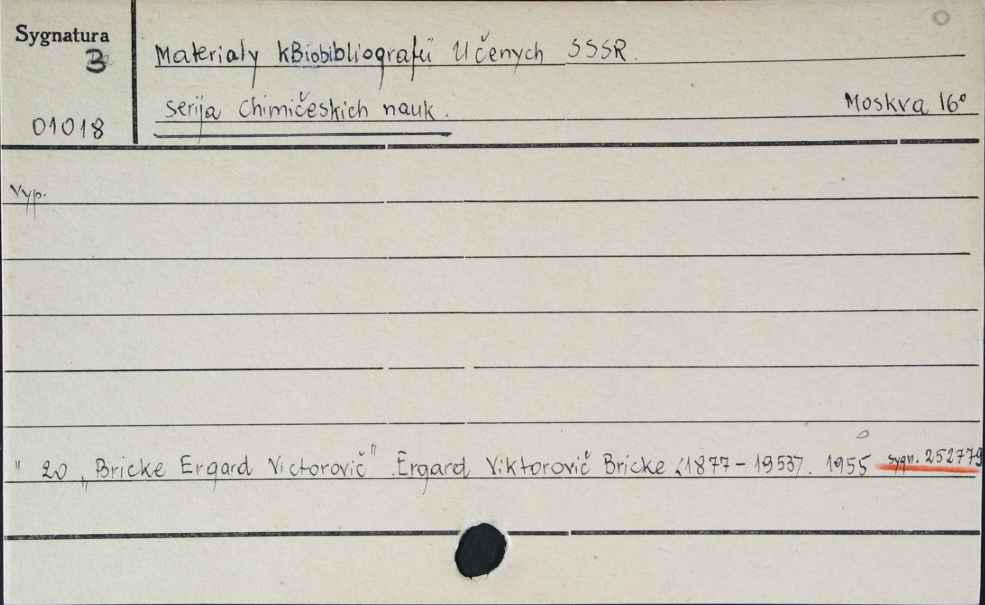 Sygnatura
3
01018
Materialy kBiobibliografii Učenych SSSR.
Serija Chimičeskich nauk.
Moskva 16°
Vyp.
" 20 „Bricke Ergard Victorovič" Ergard Viktorovič Bricke (1877-1953). 1955 sygn. 252779